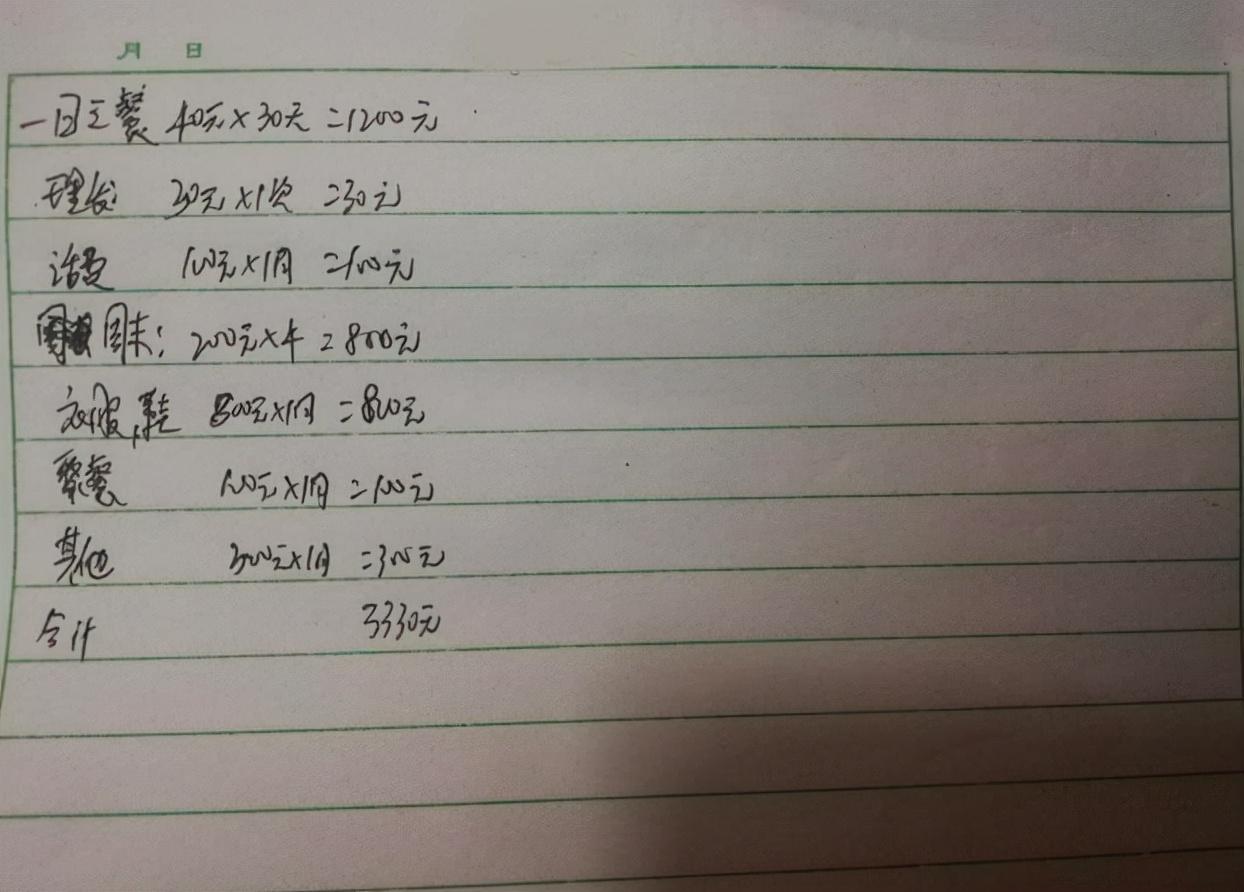 月 日
一日三餐 40元×30天=1200元
理发 30元×1次=30元
话费 100元×1月=100元
周末：200元×4=800元
衣服,鞋 800元×1月=800元
聚餐 100元×1月=100元
其他 300元×1月=300元
合计 3330元